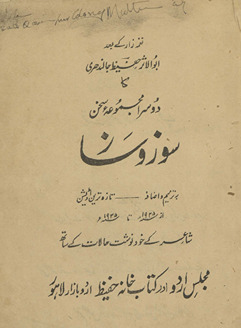 نغمہ زار کے بعد
ابوالاثر حفیظ جالندھری
کا
دوسرا مجموعۂ سخن
سوز و ساز
بہ ترمیم و اضافہ — تازہ ترین ایڈیشن
از ۱۹۲۵ء تا ۱۹۳۵ء
شاعر کے خود نوشت حالات کے ساتھ
مجلس اردو اور کتاب خانہ حفیظ اردو بازار لاہور